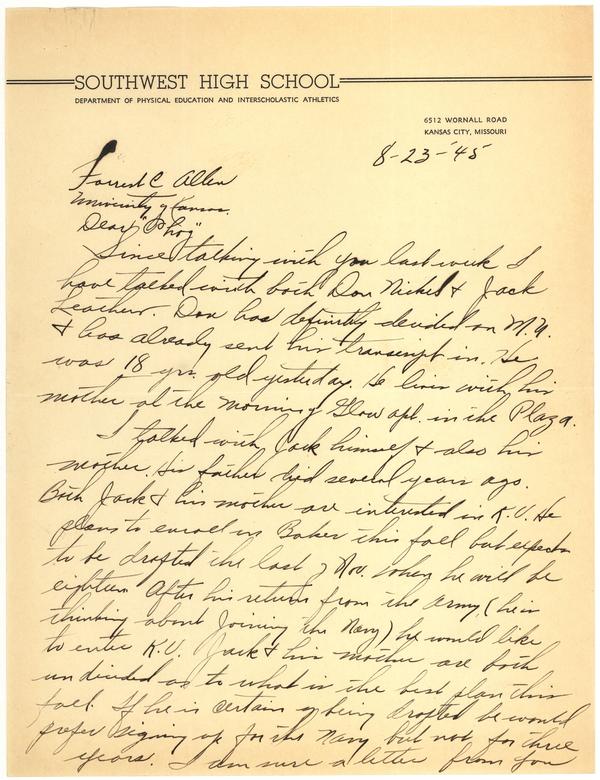 SOUTHWEST HIGH SCHOOL
DEPARTMENT OF PHYSICAL EDUCATION AND INTERSCHOLASTIC ATHLETICS
6512 WORNALL ROAD
KANSAS CITY, MISSOURI
8-23-'45
Forrest C Allen
University of Kansas.
Dear "Phog"
Since talking with you last week I
have talked with both Don Nickel & Jack
Leathers. Don has definitely decided on M.U.
& has already sent his transcript in. He
was 18 yrs. old yesterday. He lives with his
mother at the Morning Glow apt. in the Plaza.
I talked with Jack himself & also his
mother, his father died several years ago.
Both Jack & his mother are interested in K.U. He
plans to enroll in Baker this fall but expects
to be drafted the last of Nov. when he will be
eighteen. After his return from the army, (he is
thinking about joining the Navy) he would like
to enter K.U. Jack & his mother are both
undecided as to what is the best plan this
fall. If he is certain of being drafted he would
prefer signing up for the Navy but not for three
years. I am sure a letter from you